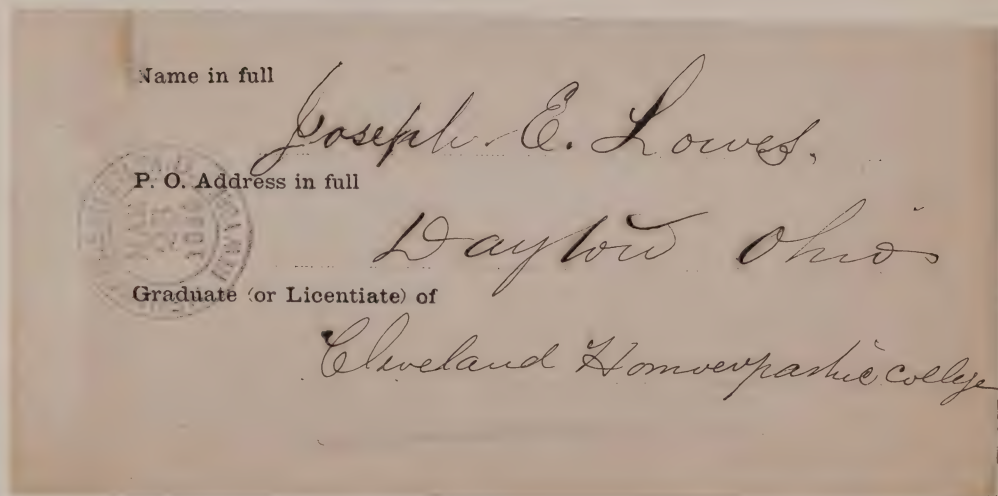 Name in full
Joseph E. Lowes.
P. O. Address in full
Dayton Ohio
Graduate (or Licentiate) of
Cleveland Homoeopathic College